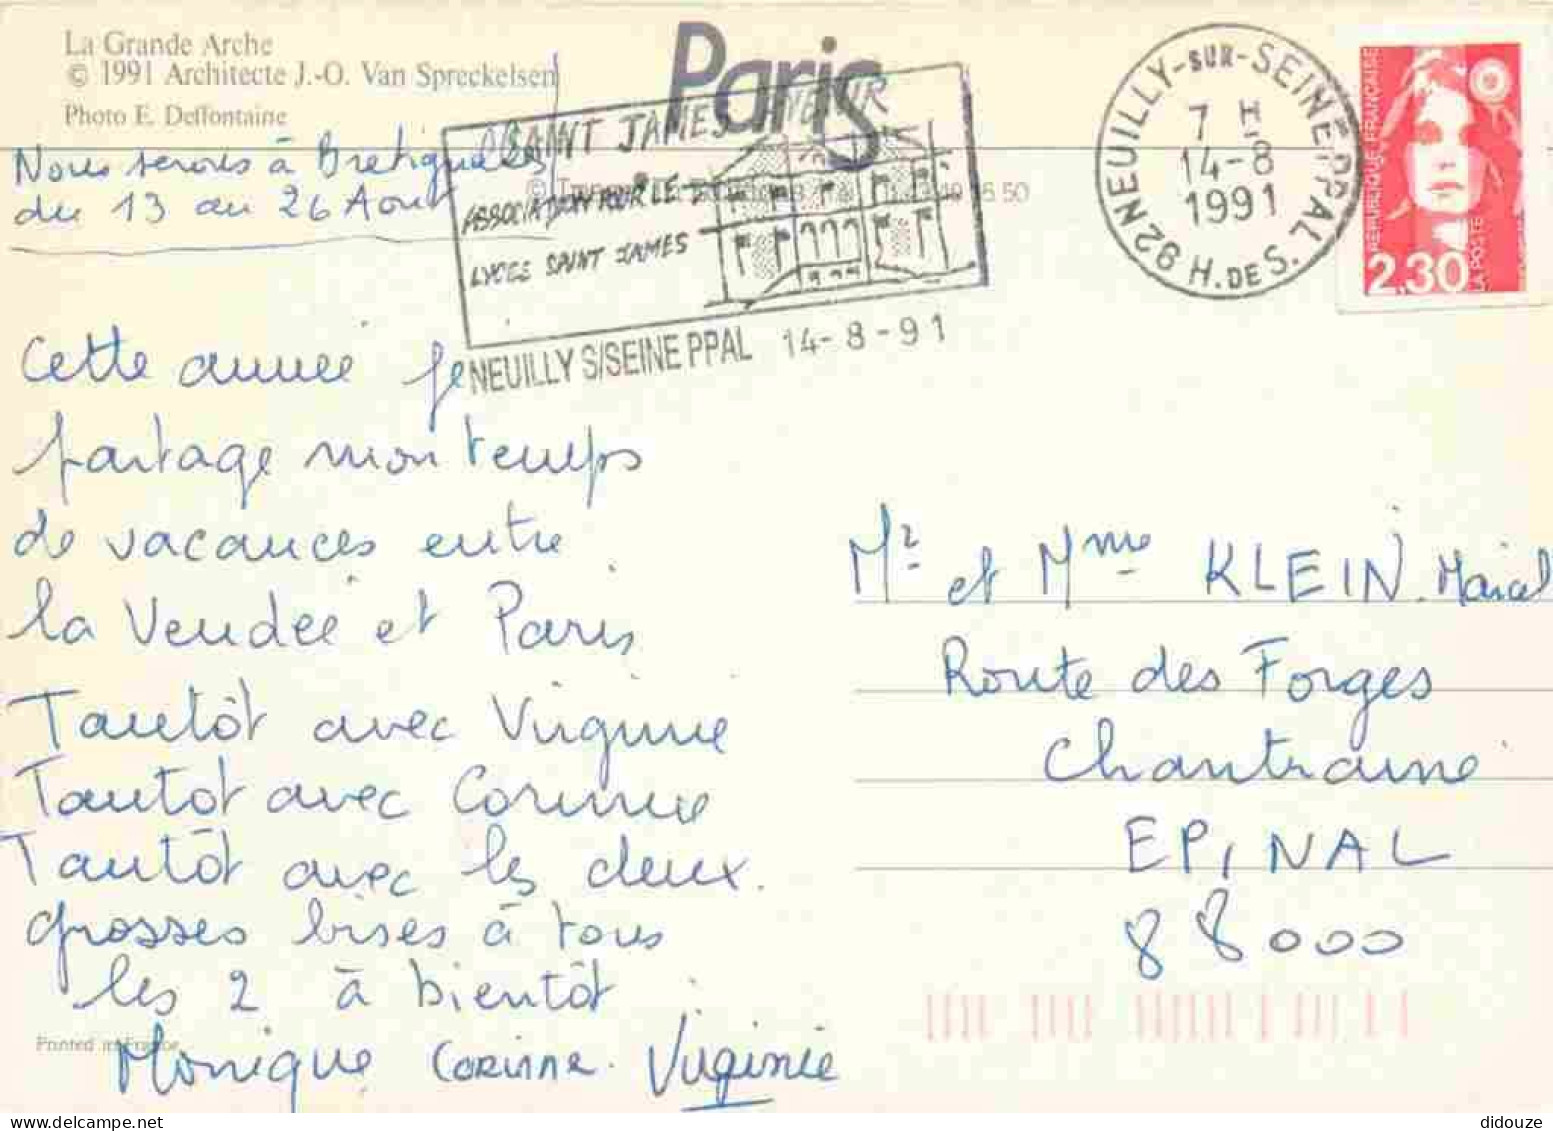 La Grande Arche
© 1991 Architecte J.-O. Van Spreckelsen
Photo E. Deffontaine
Paris
Nous serons à
du 13 au 26 Aout
SAINT JAMES
ASSOCIATION POUR LE
LYCEE SAINT JAMES
NEUILLY S/SEINE PPAL 14-8-91
92 NEUILLY-SUR-SEINE PPAL
7 H
14-8
1991
H. DE S.
RÉPUBLIQUE FRANÇAISE
LA POSTE
2,30
Cette année je
partage mon temps
de vacances entre
la Vendée et Paris
Tantôt avec Virginie
Tantot avec Corinne
Tantôt avec les deux.
grosses bises à tous
les 2 à bientôt
Monique Corinne. Virginie
Printed in France
Mr et Mme KLEIN Marcel
Route des Forges
Chantraine
EPINAL
88000
didouze